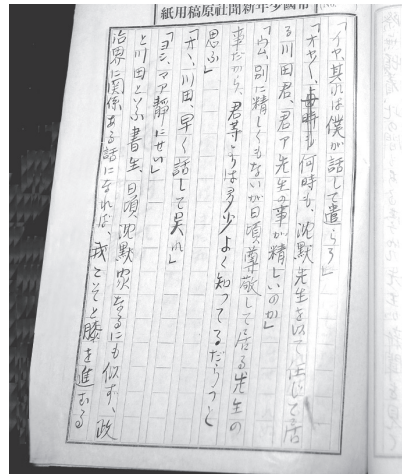 帝國少年新聞社原稿用紙
「イヤ、其れは僕が話して遣らう」
「オヤ〳〵、何時も何時も、沈默先生を以て任じて居
る川田君、君ア先生の事が精しいのか」
「ウム、別に精しくもないが日頃尊敬して居る先生の
事だから、君等よりは多少よく知ってるだらうと
思ふ」
「オヽ、川田、早く話して呉れ」
「ヨシ、マア靜にせい」
と川田といふ書生、日頃沈默家なるにも似ず、政
治界に関係ある話になれば、我こそと膝を進むる